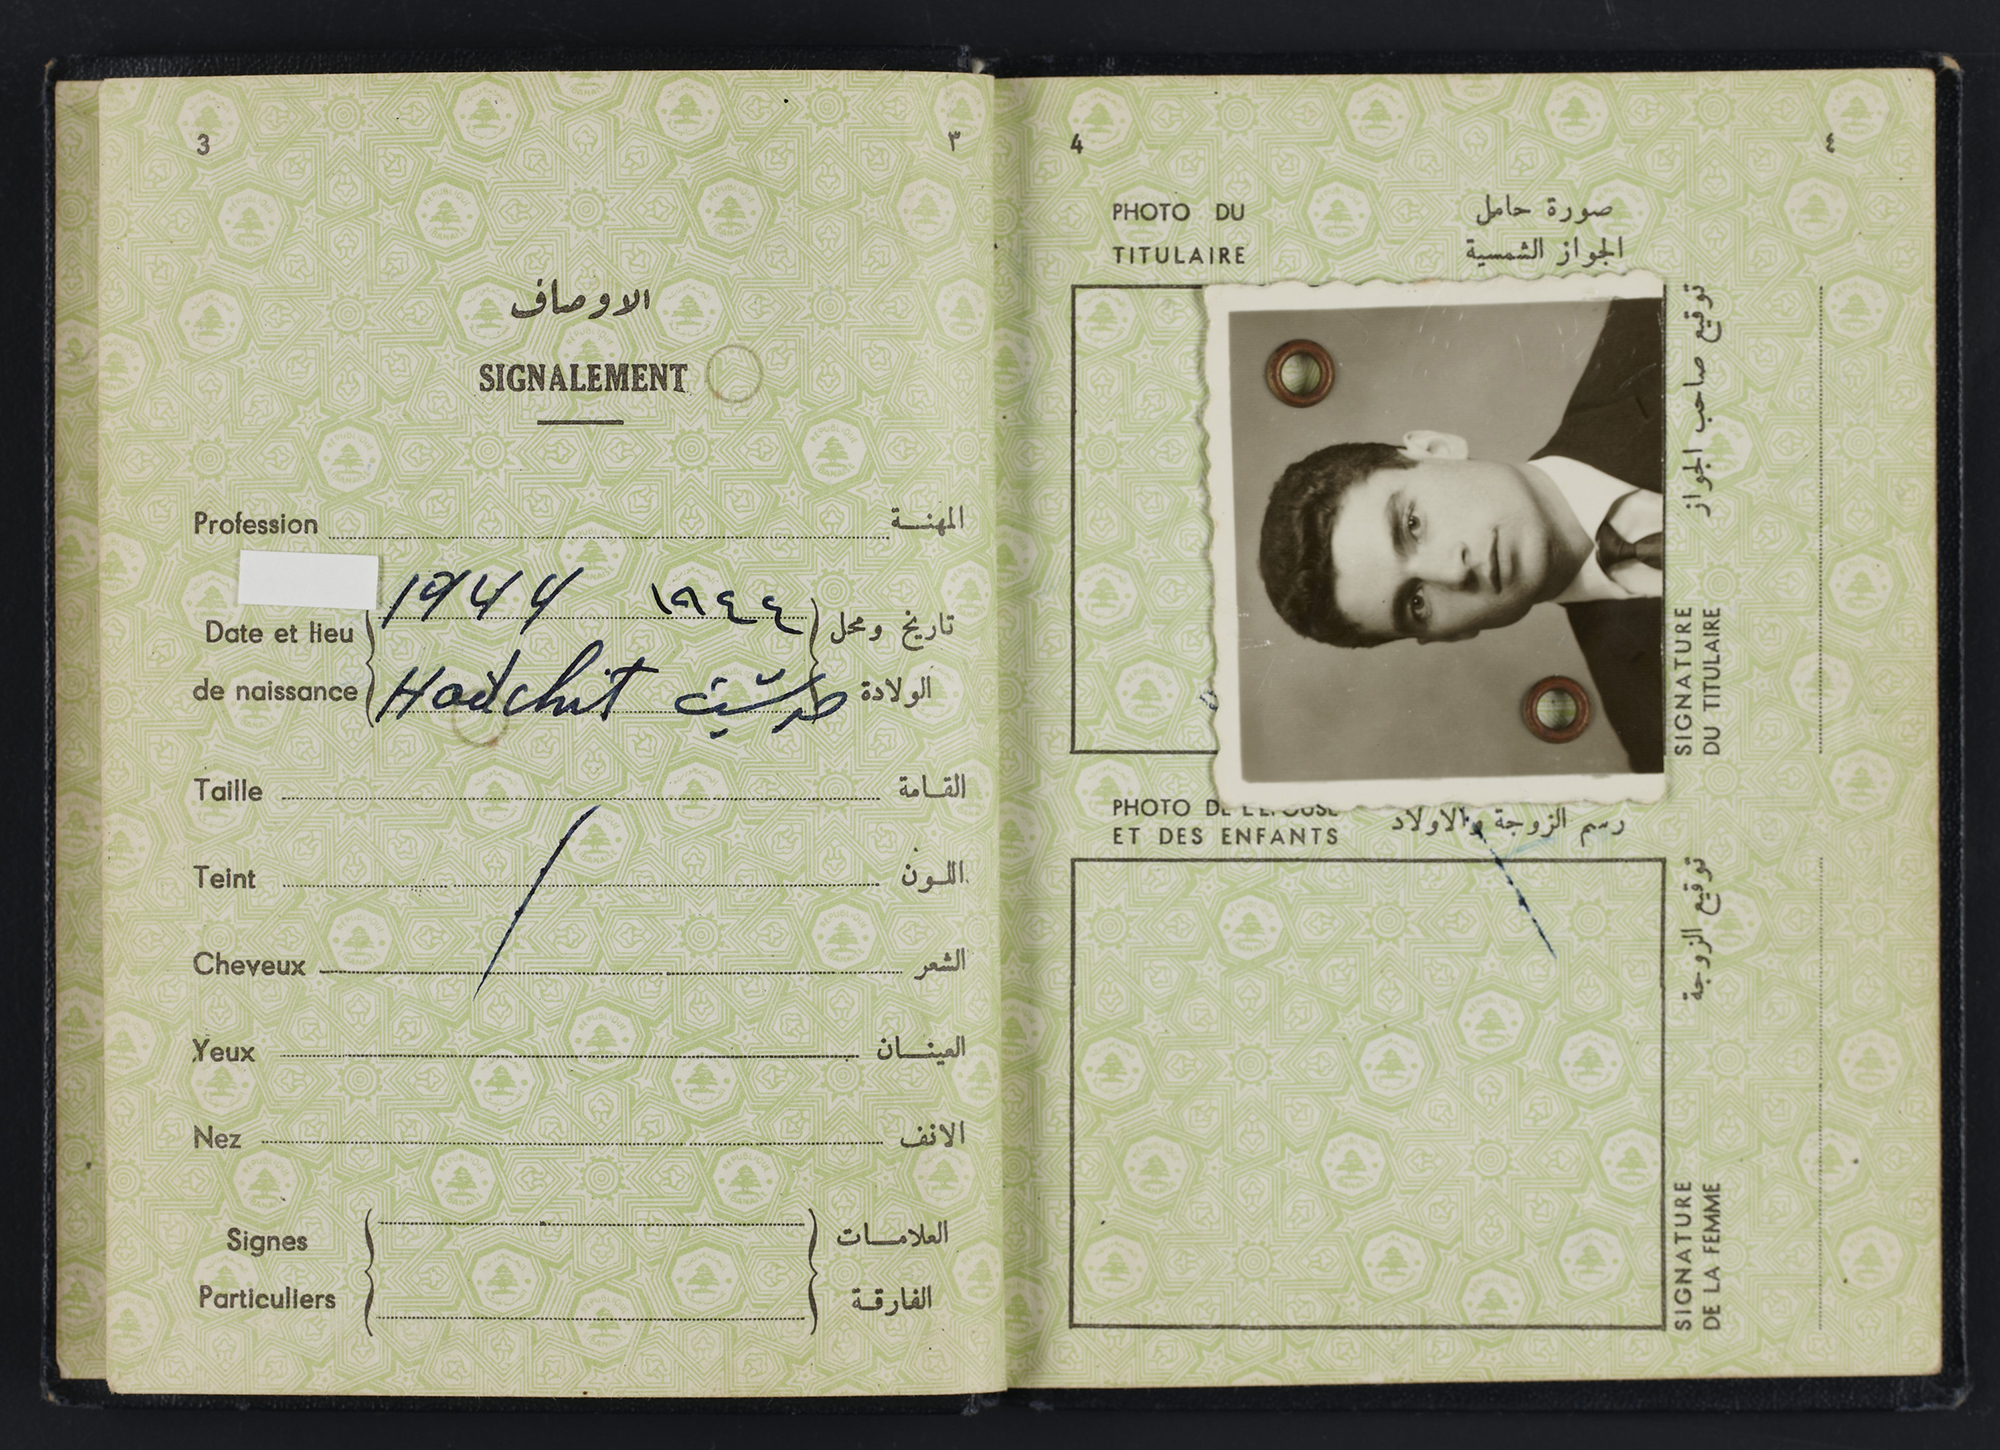 3 ٣
الاوصاف
SIGNALEMENT
Profession المهنـــة
1944 ١٩٤٤
Date et lieu تاريخ ومحل
Hadchit حدشيت
de naissance الولادة
Taille القـــامة
Teint اللــون
Cheveux الشعر
Yeux العينـــان
Nez الانف
Signes العلامـــات
Particuliers الفارقــة
4 ٤
PHOTO DU صورة حامل
TITULAIRE الجواز الشمسية
توقيع صاحب الجواز
SIGNATURE
DU TITULAIRE
PHOTO DE L'EPOUSE
ET DES ENFANTS رسم الزوجة والاولاد
توقيع الزوجة
SIGNATURE
DE LA FEMME